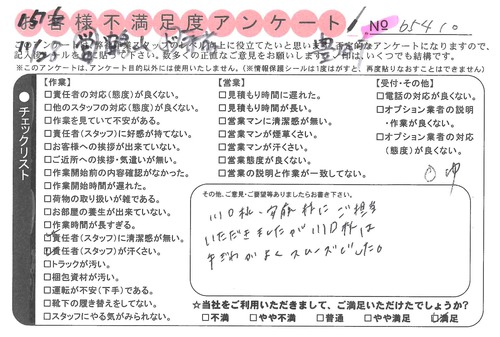 お客様不満足度アンケート
No 6541
このアンケートは
に役立てたいと思います。否定的なアンケートになりますので、
数多くの正直なご意見をお願いします。
いくつでも結構です。
※このアンケートは、アンケート目的以外には使用いたしません。（※情報保護シールは1度はがすと、再度貼りなおすことはできません）
チェックリスト
【作業】
□責任者の対応（態度）が良くない。
□他のスタッフの対応（態度）が良くない。
□作業を見ていて不安がある。
□責任者（スタッフ）に好感が持てない。
□お客様への挨拶が出来ていない。
□ご近所への挨拶・気遣いが無い。
□作業開始前の内容確認がなかった。
□作業開始時間が遅れた。
□荷物の取り扱いが雑である。
□お部屋の養生が出来ていない。
□作業時間が長すぎる。
□責任者（スタッフ）に清潔感が無い。
□責任者（スタッフ）が汗くさい。
□トラックが汚い。
□梱包資材が汚い。
□運転が不安（下手）である。
□靴下の履き替えをしてない。
□スタッフにやる気がみられない。
【営業】
□見積もり時間に遅れた。
□見積もり時間が長い。
□営業マンに清潔感が無い。
□営業マンが煙草くさい。
□営業マンが汗くさい。
□営業態度が良くない。
□営業の説明と作業が一致してない。
【受付・その他】
□電話の対応が良くない。
□オプション業者の説明
・作業が良くない。
□オプション業者の対応
（態度）が良くない。
その他、ご意見・ご要望等ありましたらお書き下さい。
川口様、安藤様にご担当
いただきましたが川口様は
手ぎわがよくスムーズでした。
☆当社をご利用いただきまして、ご満足いただけたでしょうか？
□不満 □やや不満 □普通 □やや満足 □満足